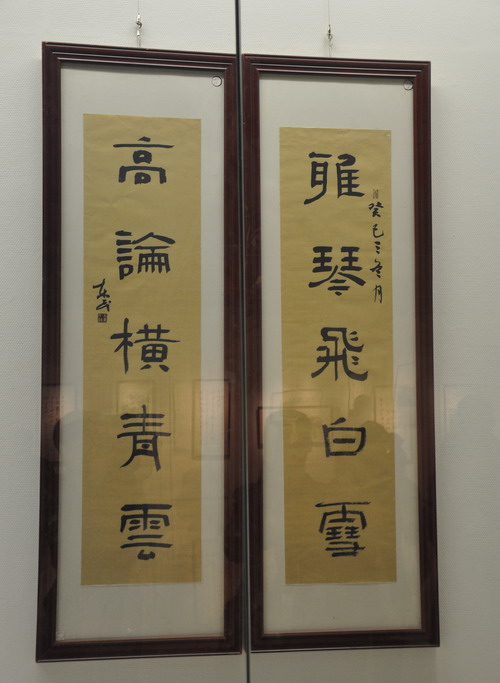 雅琴飛白雪
癸巳
高論橫青雲